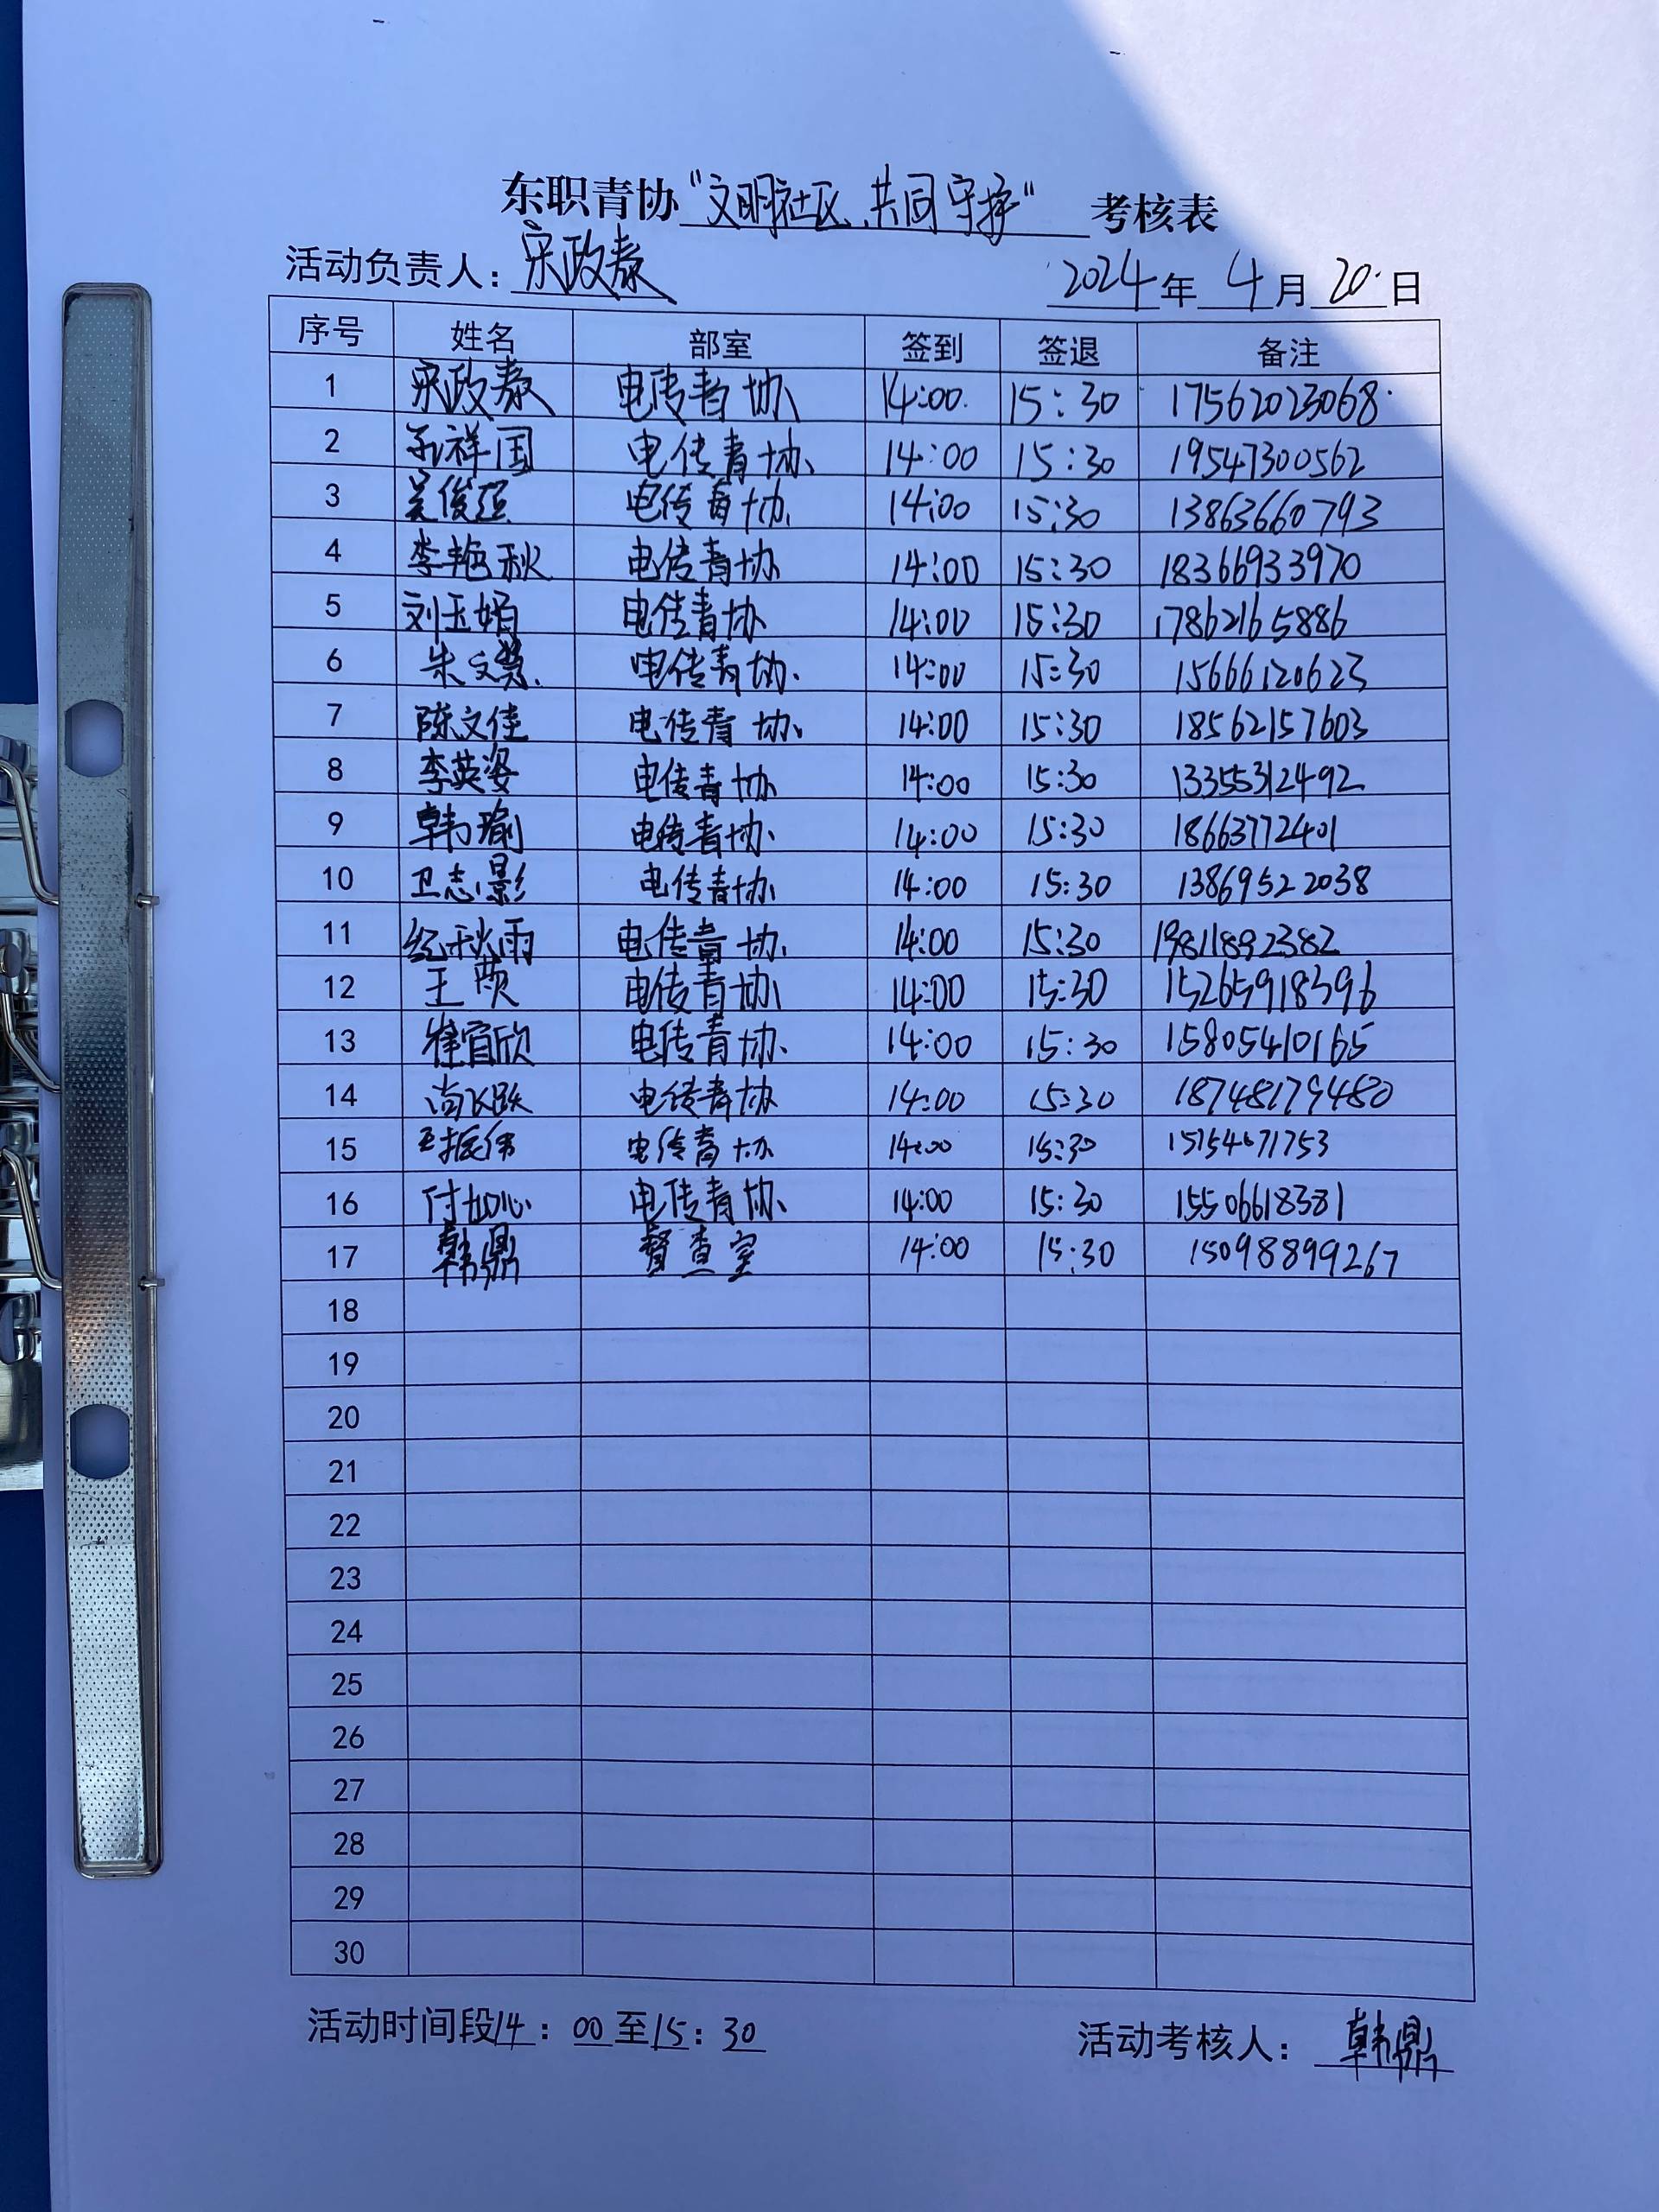 东职青协“文明社区、共同守护”考核表
活动负责人：宋政泰 2024年4月20日
序号 姓名 部室 签到 签退 备注
1 宋政泰 电传青协 14:00 15:30 17562023068
2 孙祥国 电传青协 14:00 15:30 19547300562
3 吴俊 电传青协 14:00 15:30 13863660793
4 李艳秋 电传青协 14:00 15:30 18366933970
5 刘玉娟 电传青协 14:00 15:30 17862165886
6 朱文慧 电传青协 14:00 15:30 15666120623
7 陈文佳 电传青协 14:00 15:30 18562157603
8 李英姿 电传青协 14:00 15:30 13355312492
9 韩瑜 电传青协 14:00 15:30 18663772401
10 卫志影 电传青协 14:00 15:30 13869522038
11 纪秋雨 电传青协 14:00 15:30 19811892382
12 王 电传青协 14:00 15:30 15265918396
13 崔宜欣 电传青协 14:00 15:30 15805410165
14 尚飞跃 电传青协 14:00 15:30 18748179480
15 振伟 电传青协 14:00 15:30 15154671753
16 付加心 电传青协 14:00 15:30 15506618381
17 韩鼎 督查室 14:00 15:30 15098899267
18
19
20
21
22
23
24
25
26
27
28
29
30
活动时间段14：00至15：30 活动考核人：韩鼎